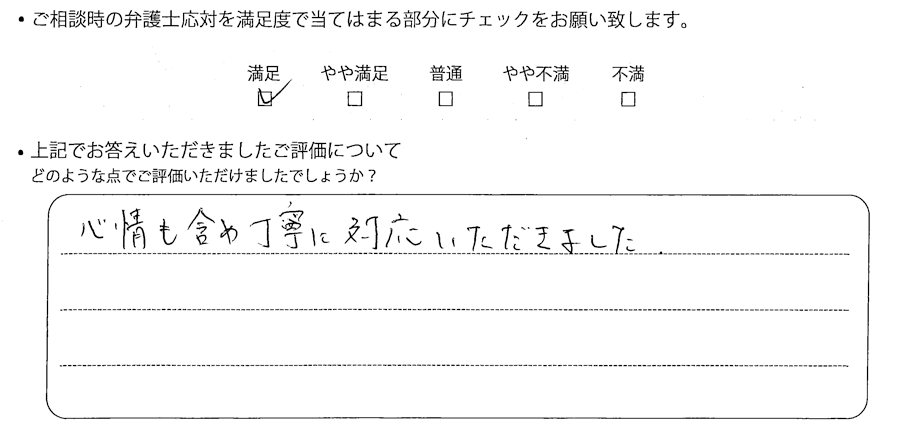 ・ご相談時の弁護士応対を満足度で当てはまる部分にチェックをお願い致します。
満足 やや満足 普通 やや不満 不満
☑ □ □ □ □
・上記でお答えいただきましたご評価について
どのような点でご評価いただけましたでしょうか？
心情も含め丁寧に対応いただきました.